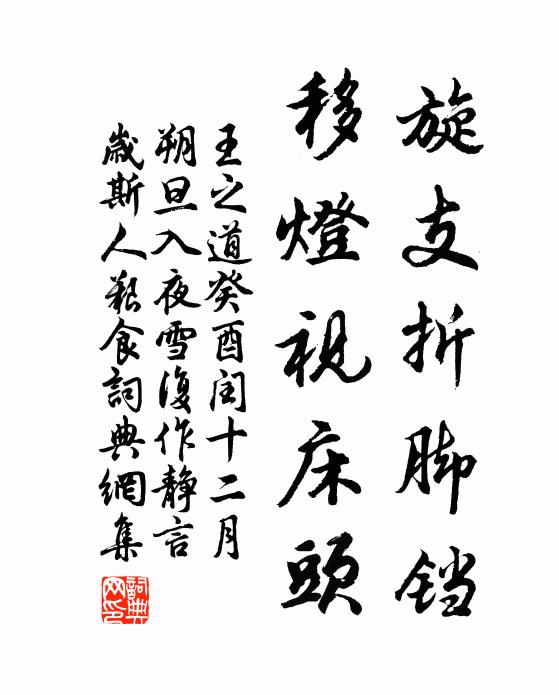 旋支折脚铛
移燈視床頭
王之道癸酉閏十二月
朔旦入夜雪復作靜言
歲斯人艱食詞典網集
詞典
网印